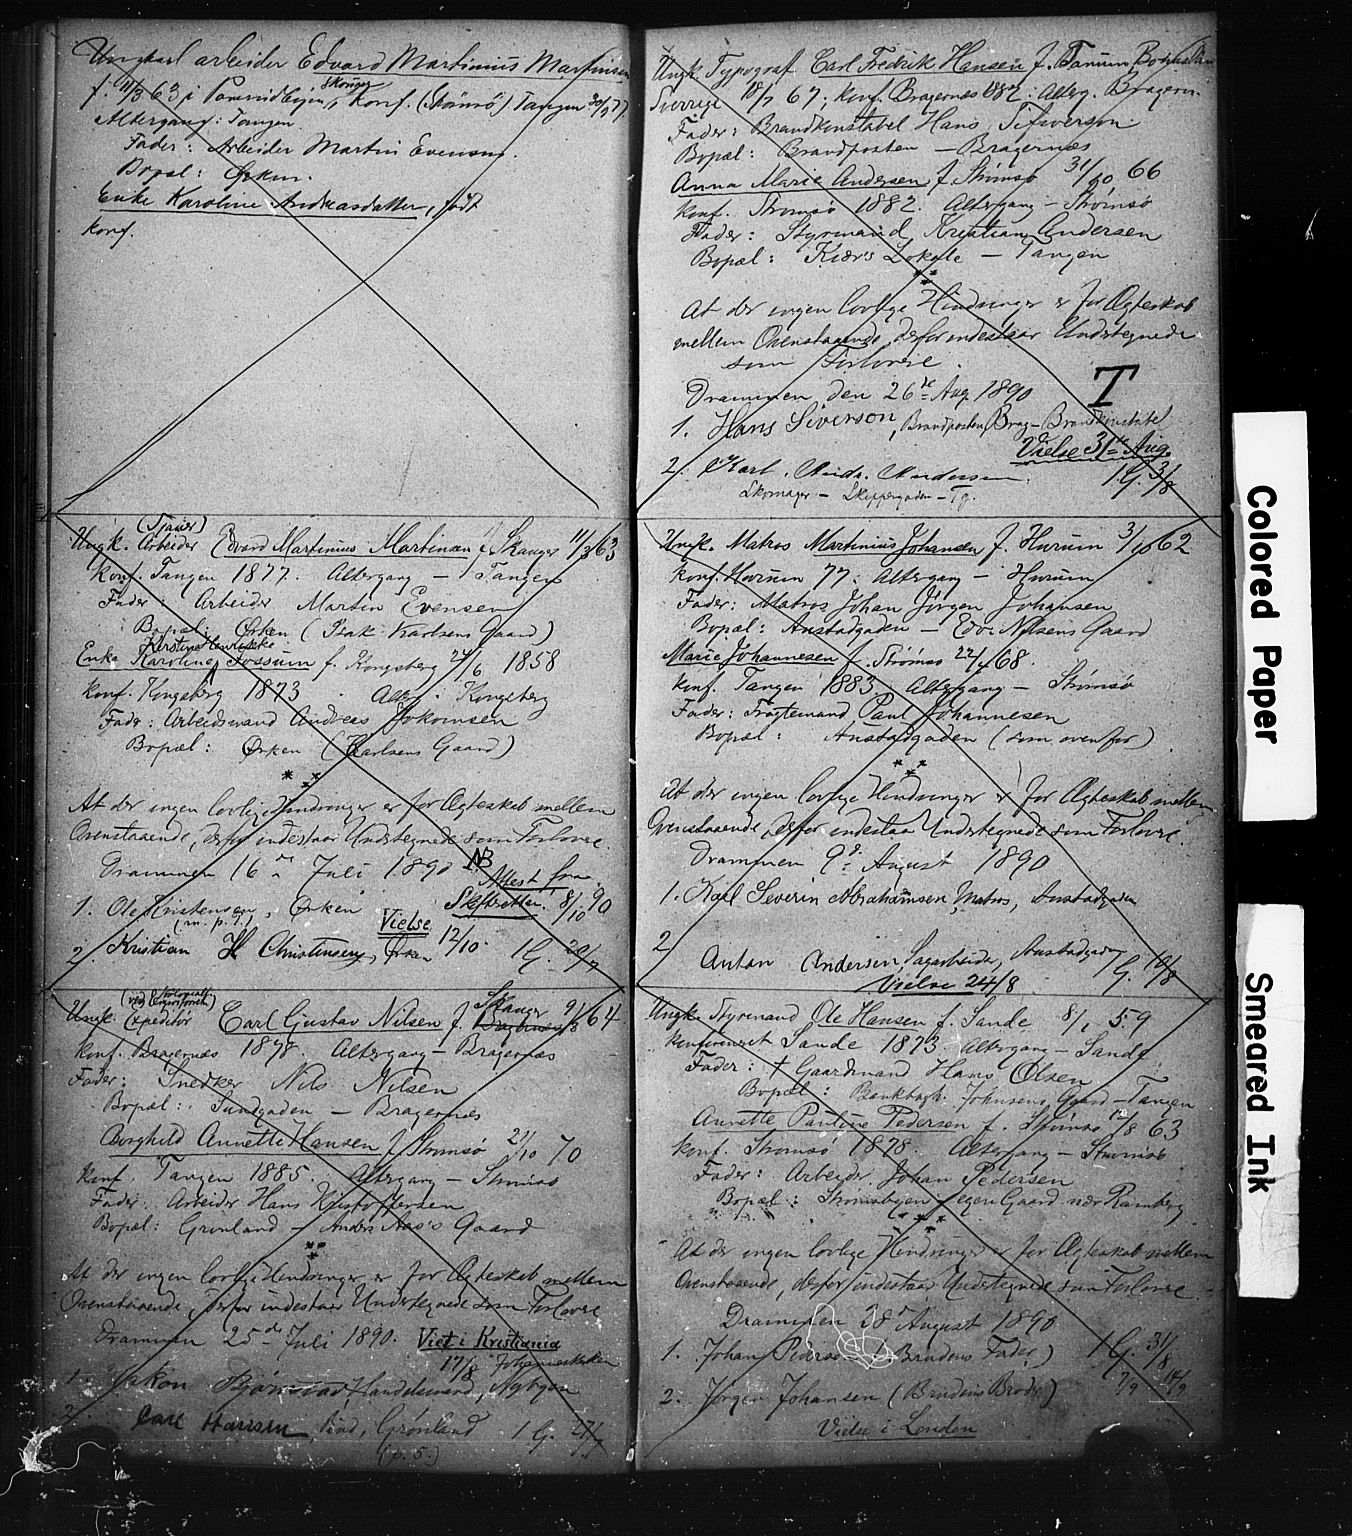 Ungkarl arbeider Edvard Martinius Martinsen
f. 11/3 63 i Skouger, konf. (Strømsø) Tangen 30/9 77.
Altergang: Tangen.
Fader: Arbeider Martin Evensen.
Bopæl: Ørken.
Enke Karoline Andreasdatter, født
konf.
(Tjener)
Ungk. Arbeider Edvard Martinius Martinsen f. Skauger 11/3 63
konf. Tangen 1877. Altergang – Tangen
Fader: Arbeider Martin Evensen
Bopæl: Ørken (Isak Karlsens Gaard)
Kirstine Henrikke
Enke Karoline Fossum f. Kongsberg 24/6 1858
konf. Kongsberg 1873. Alterg. Kongsberg
Fader: Arbeidsmand Andreas Jokomsen
Bopæl: Ørken (Karlsens Gaard)
At der ingen lovlige Hindringer er for Ægteskab mellem
Ovenstaaende, derfor indestaar Undertegnede som Forlovere.
Drammen 16de Juli 1890 NB
Attest fra
Skifteretten 8/10 90
1. Ole Kristensen, Ørken
(m. p. p.)
Vielse 12/10.
2 Kristian H Christensen, Ørken 1 G. 20/7
Ungk. Expeditør Carl Gustav Nilsen f. Skauger 9/3 64
konf. Bragernæs 1878. Altergang – Bragernæs
Fader: Snedker Nils Nilsen
Bopæl: Sundgaden – Bragernæs
Borghild Annette Hansen f. Strømsø 21/10 70
konf. Tangen 1885. Altergang – Strømsø
Fader: Arbeider Hans Kristoffersen
Bopæl: Grønland – Anders Aas's Gaard
At der ingen lovlige Hindringer er for Ægteskab mellem
Ovenstaaende, derfor indestaar Undertegnede som Forlovere
Drammen 25de Juli 1890. Viet i Kristiania
17/8 Johanneskirken
1. Hakon Bjørnstad, Handelsmand, Nybyen
2. Carl Hansen, Grønland 1 G. 27/7
(p. 5.)
Ungk. Typograf Carl Fredrik Hansen f. Tanum Bohuslän
Sverrige 18/7 67; konf. Bragernæs 1882: Alterg. Bragern.
Fader: Brandkonstabel Hans Sifverson.
Bopæl: Brandposten – Bragernæs
Anna Marie Andersen f. Strømsø 31/10 66
konf. Strømsø 1882. Altergang – Strømsø
Fader: Styrmand Kristian Andersen
Bopæl: Kiær's Lokale – Tangen
At der ingen lovlige Hindringer er for Ægteskab
mellem Ovenstaaende, derfor indestaar Undertegnede
som Forlovere.
Drammen den 26de Aug 1890 T
1. Hans Siverson, Brandposten, Brag– Brandkonstabel
Vielse 31te Aug.
2. Karl Andr. Andersen. 1 G. 3/8
Skomager – Skippergaden – Tg.
Ungk. Matros Martinius Johansen f. Hurum 3/10 62
konf. Hurum 77: Altergang – Hurum
Fader: Matros Johan Jörgen Johansen
Bopæl: Austadgaden – Edv. Nilsens Gaard
Marie Johannesen f. Strømsø 22/4 68.
konf. Tangen 1883. Altergang – Strømsø
Fader: Fragtemand Paul Johannesen
Bopæl: Austadgaden (som ovenfor)
At der ingen lovlige Hindringer er for Ægteskab mellem
Ovenstaaende, derfor indestaa Undertegnede som Forlovere.
Drammen 9de August 1890
1. Karl Severin Abrahamsen, Matros, Austadgaden
2 Anton Andersen Sagarbeider, Austadgaden 1 G. 10/8
Vielse 24/8
Ungk. Styrmand Ole Hansen f. Sande 8/1 59
konfirmeret Sande 1873 Altergang – Sande
Fader: † Gaardmand Hans Olsen
Bopæl: Bankbogh. Johnsens Gaard – Tangen
Annette Pauline Pedersen f. Strømsø 17/8 63
konf. Strømsø 1878. Altergang – Strømsø
Fader: Arbeider Johan Pedersen
Bopæl: Strømsbyen egen Gaard nær Ramberg
At der ingen lovlige Hindringer er for Ægteskab mellem
Ovenstaaende, derfor indestaar Undertegnede som Forlovere.
Drammen 38 August 1890
1. Johan Pedersen (Brudens Fader) 1 G. 31/8
2. Jørgen Johansen (Brudens Broder) 7/9 14/9
Vielse i London
Colored Paper
Smeared Ink